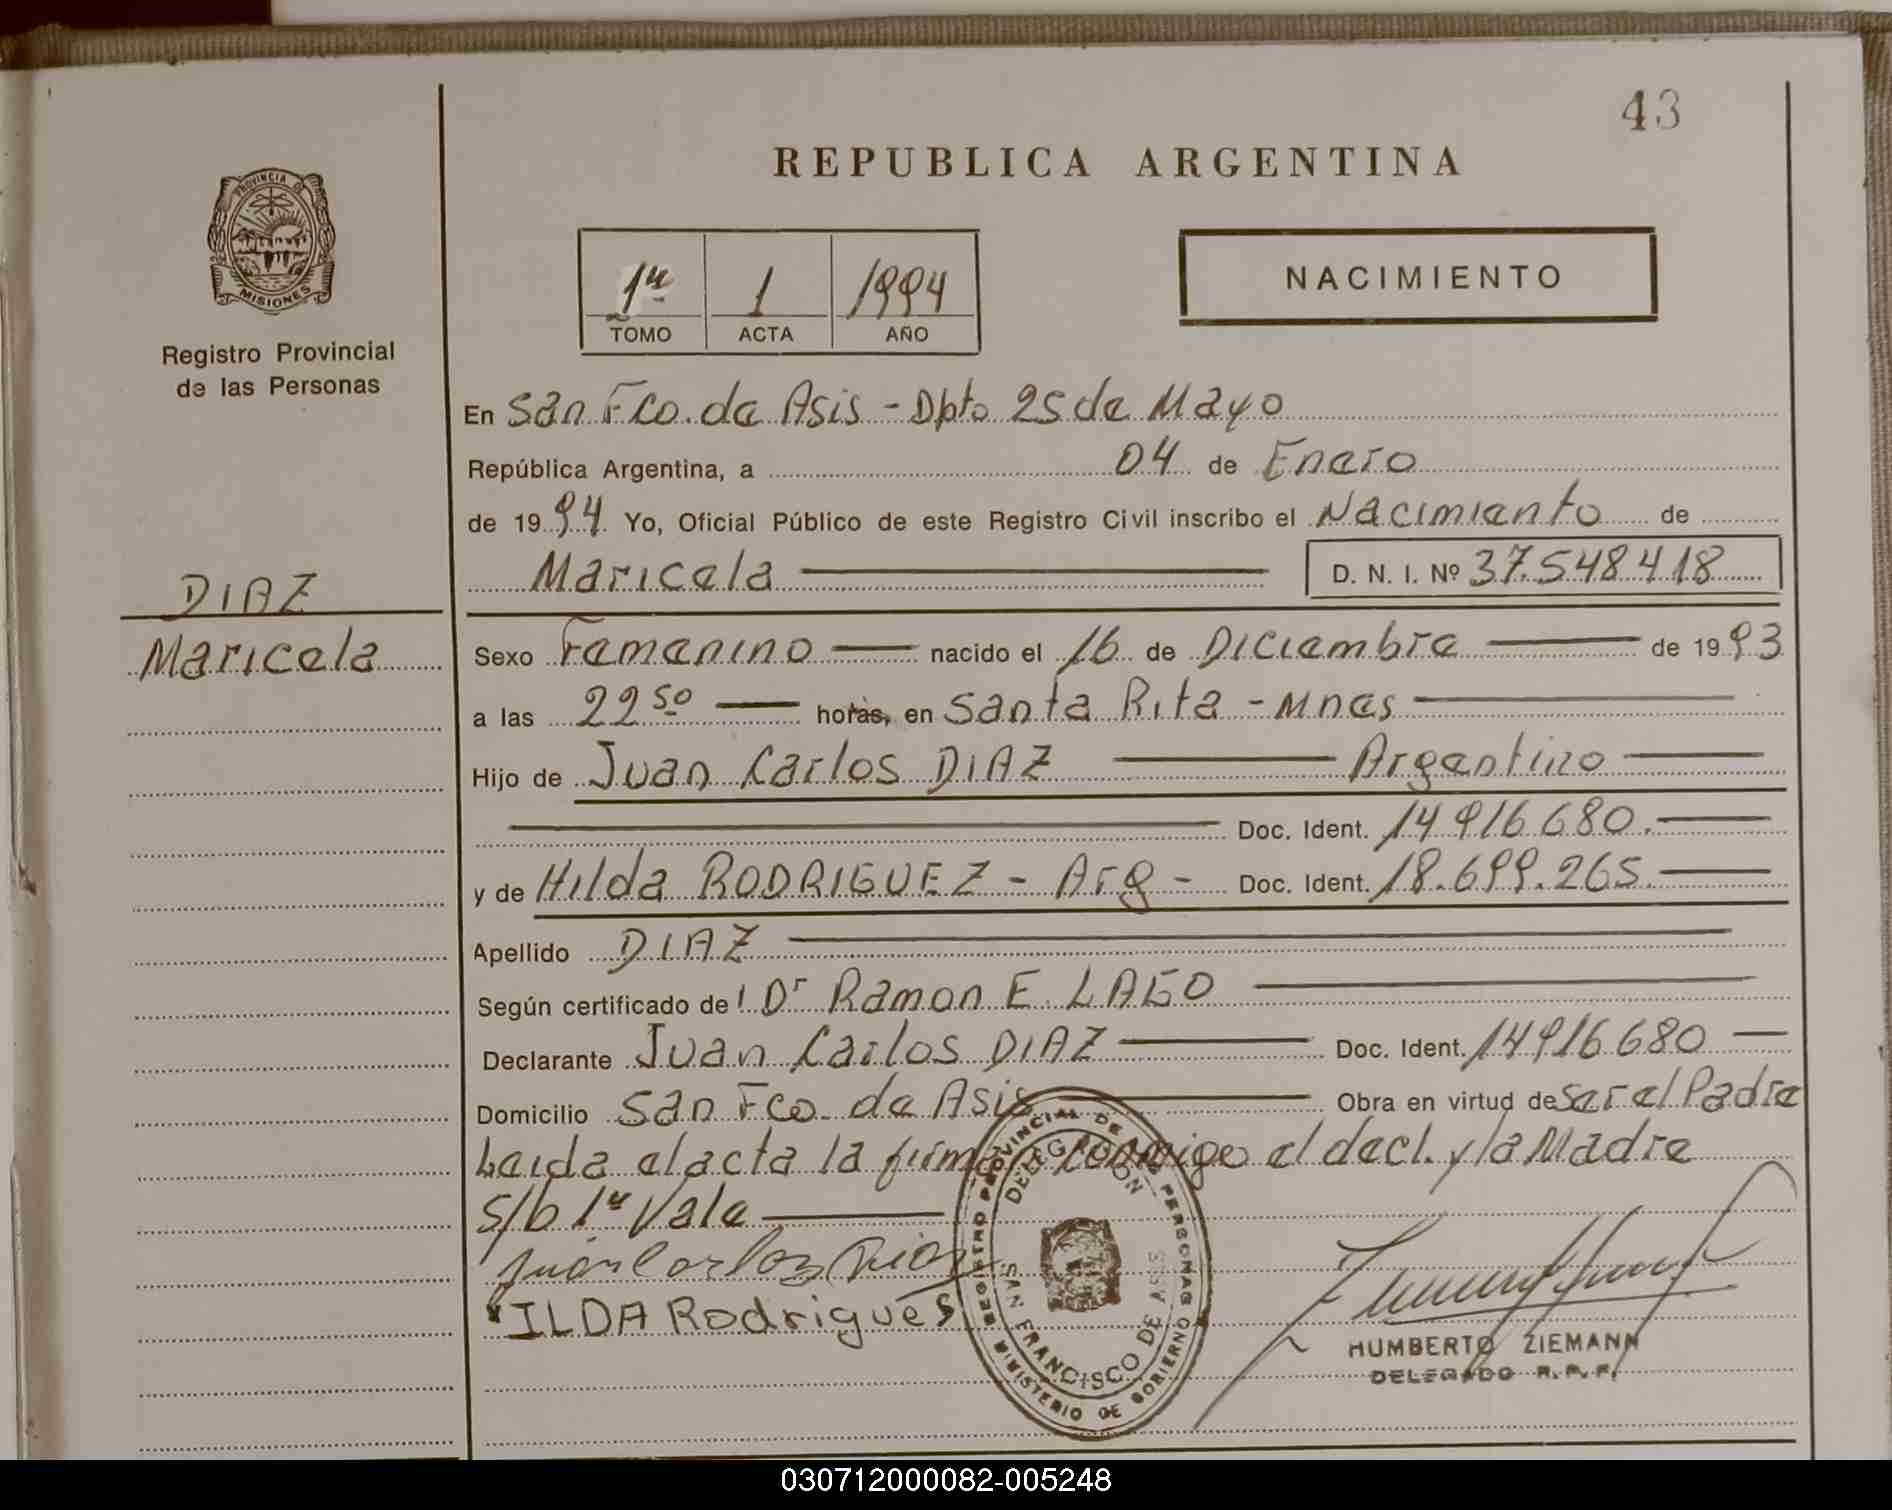 43
REPUBLICA ARGENTINA
PROVINCIA DE
MISIONES
Registro Provincial
de las Personas
1º TOMO
1 ACTA
1994 AÑO
NACIMIENTO
En San Fco. de Asis - Dpto 25 de Mayo
República Argentina, a 04 de Enero
de 1994 Yo, Oficial Público de este Registro Civil inscribo el Nacimiento de
Maricela D. N. I. Nº 37.548.418
DIAZ
Maricela
Sexo Femenino nacido el 16 de Diciembre de 1993
a las 22 50 horas, en Santa Rita - Mnes
Hijo de Juan Carlos DIAZ Argentino
Doc. Ident. 14916680.
y de Hilda RODRIGUEZ - Arg - Doc. Ident. 18.699.265.
Apellido DIAZ
Según certificado del Dr Ramon E. LAGO
Declarante Juan Carlos DIAZ Doc. Ident. 14916680
Domicilio San Fco. de Asis Obra en virtud de ser el Padre
Leida el acta la firman conmigo el decl. y la Madre
S/b 1º Vale
Juan Carlos Diaz
ILDA Rodrigues
REGISTRO PROVINCIAL DE LAS PERSONAS
DELEGACION
SAN FRANCISCO DE ASIS
MINISTERIO DE GOBIERNO
HUMBERTO ZIEMANN
DELEGADO R.P.P.
030712000082-005248